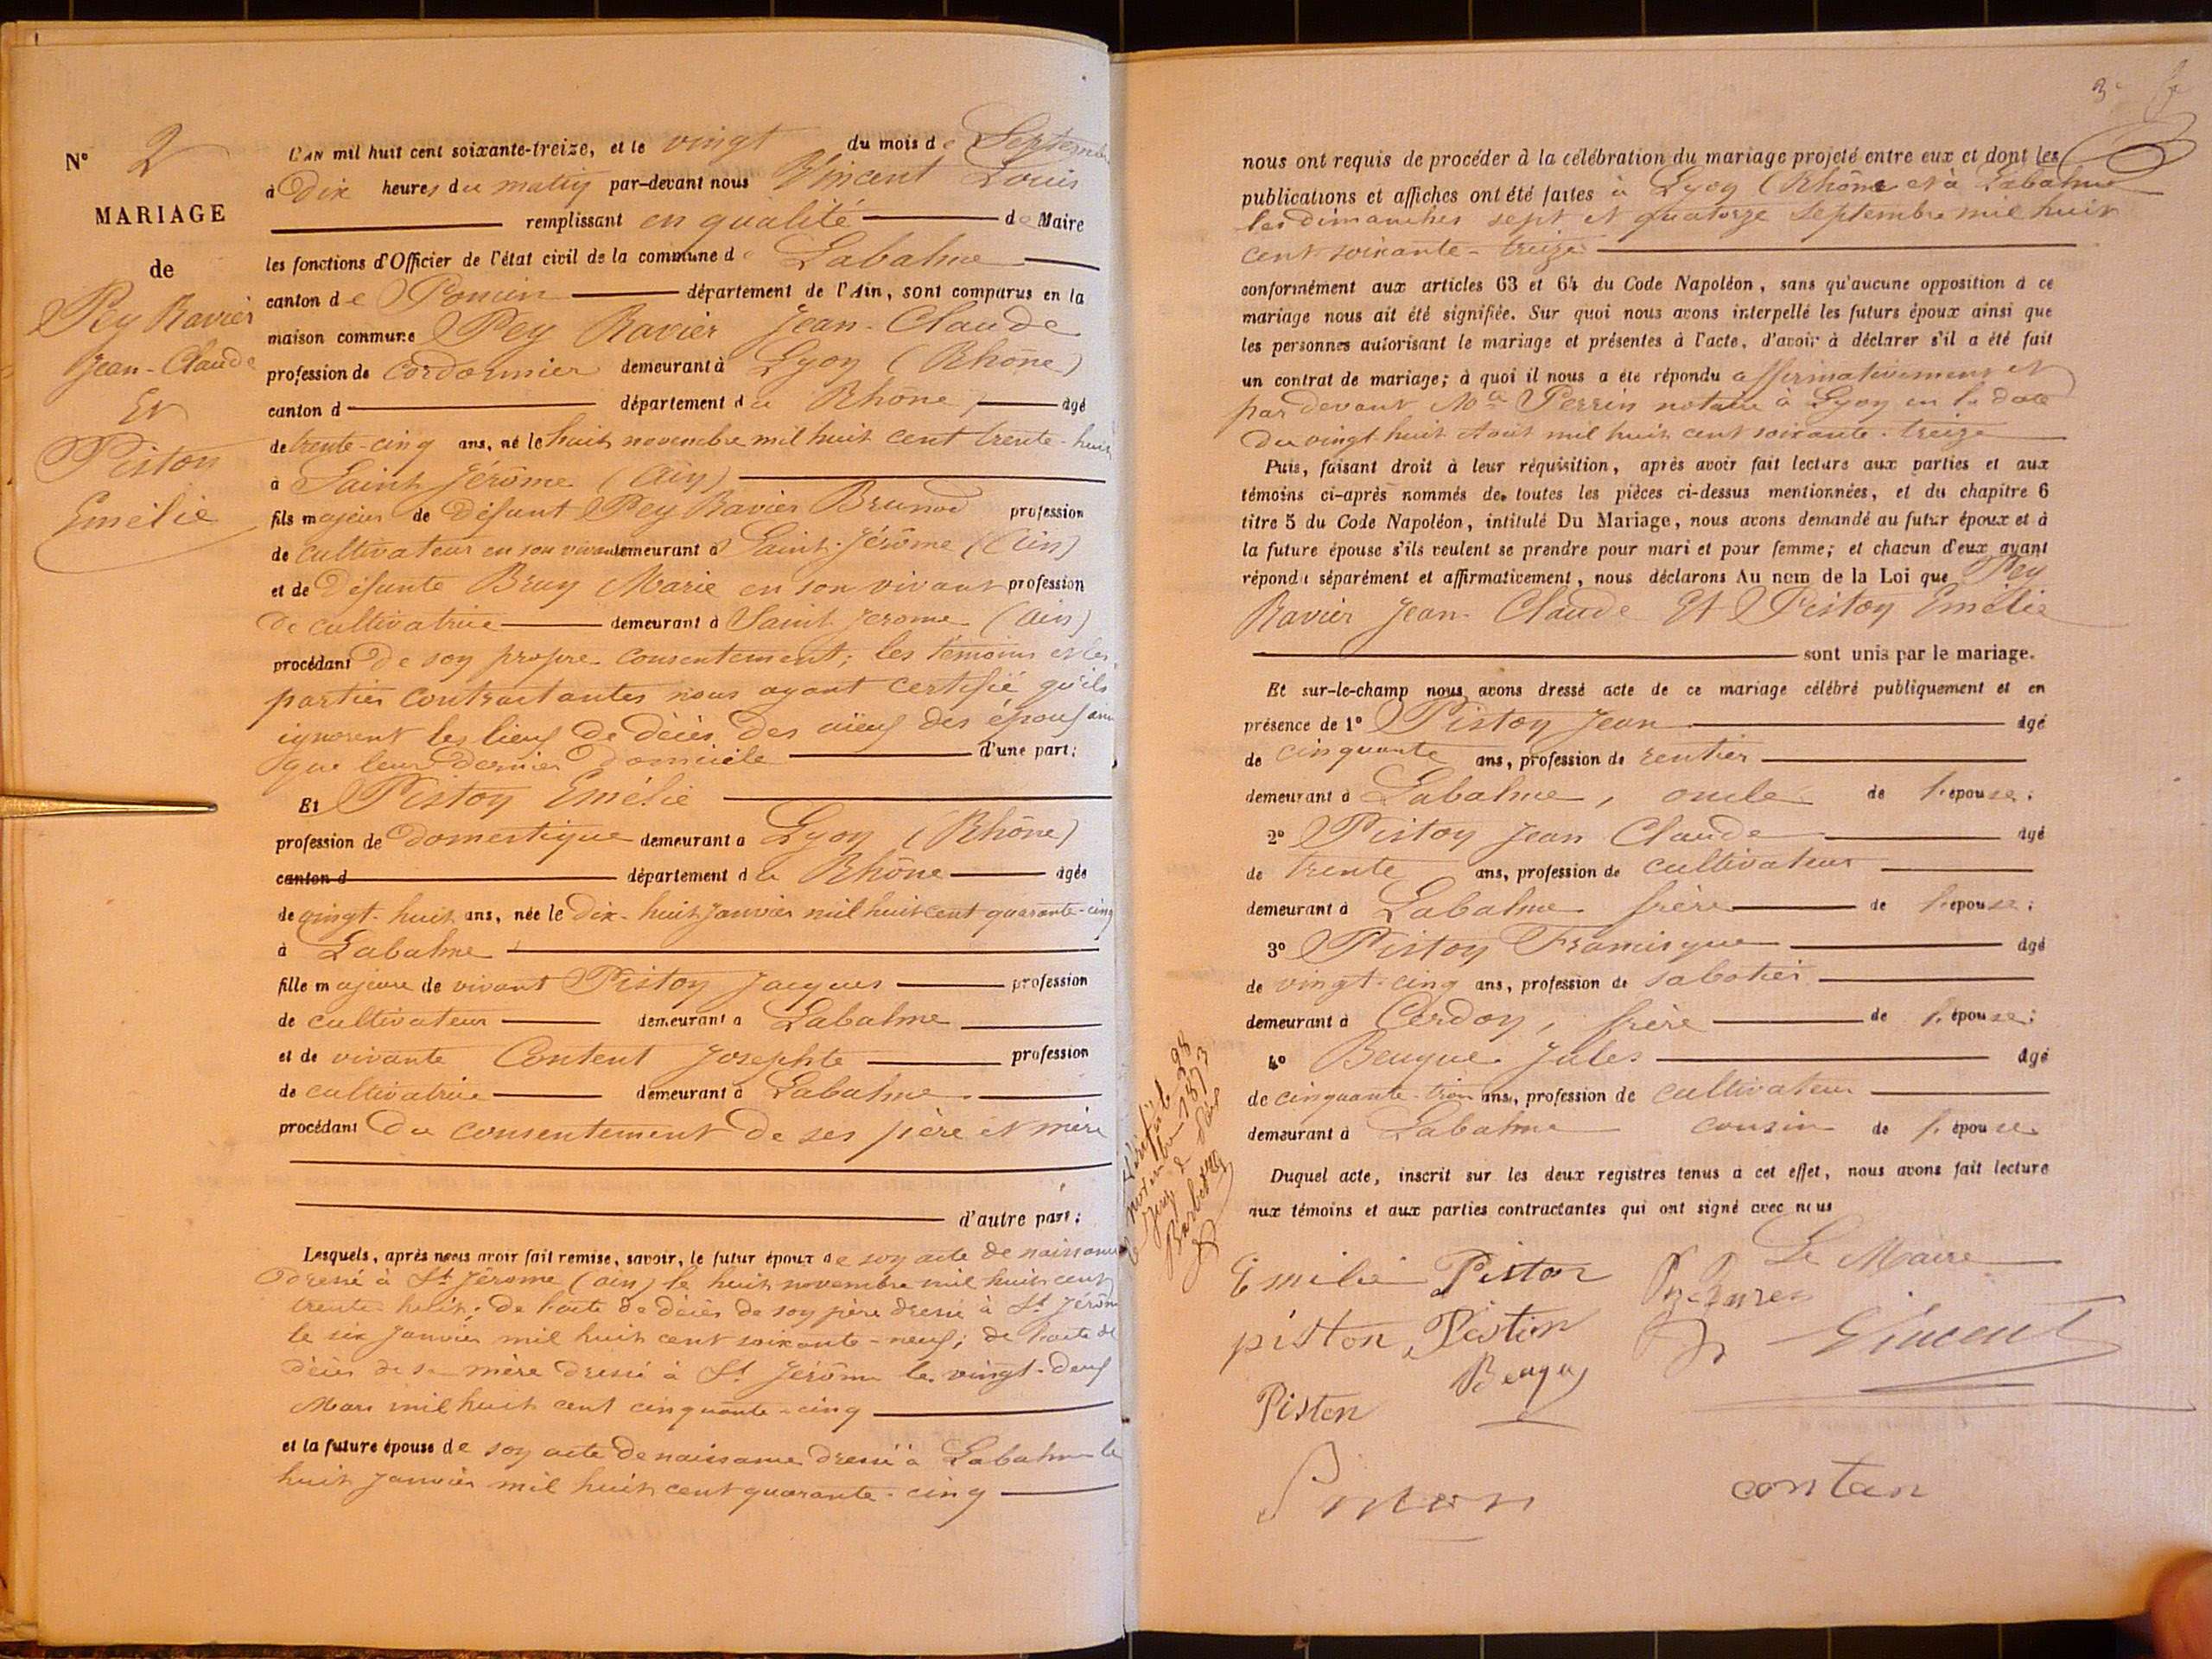 N° 2
MARIAGE
de
Pey Ravier
Jean-Claude
Et
Piston
Emélie
L'AN mil huit cent soixante-treize, et le vingt du mois de Septembre
à Dix heures du matin par-devant nous Vincent Louis
remplissant en qualité de Maire
les fonctions d'Officier de l'état civil de la commune de Labalme
canton de Poncin département de l'Ain, sont comparus en la
maison commune Pey Ravier Jean-Claude
profession de Cordonnier demeurant à Lyon (Rhône)
canton d département du Rhône, âgé
de trente-cinq ans, né le huit novembre mil huit cent trente-huit
à Saint Jérôme (Ain)
fils majeur de Défunt Pey Ravier Brunod profession
de cultivateur en son vivant demeurant à Saint-Jérôme (Ain)
et de Défunte Bruy Marie en son vivant profession
de cultivatrice demeurant à Saint Jerome (Ain)
procédant De son propre consentement; les témoins et les
parties contractantes nous ayant certifié qu'ils
ignorent les lieux de décès des aïeux des époux ainsi
que leur dernier domicile d'une part;
Et Piston Emélie
profession de Domestique demeurant à Lyon (Rhône)
canton d département du Rhône âgée
de vingt-huit ans, née le Dix-huit janvier mil huit cent quarante-cinq
à Labalme
fille majeure de vivant Piston Jacques profession
de cultivateur demeurant à Labalme
et de vivante Content Josephte profession
de cultivatrice demeurant à Labalme
procédant du consentement de ses père et mère
d'autre part;
Lesquels, après nous avoir fait remise, savoir, le futur époux de son acte de naissance
dressé à St Jérome (ain) le huit novembre mil huit cent
trente huit; de l'acte de décès de son père dressé à St Jérôme
le six Janvier mil huit cent soixante-neuf; de l'acte de
décès de sa mère dressé à St Jérôme le vingt-deux
Mars mil huit cent cinquante-cinq
et la future épouse de son acte de naissance dressé à Labalme le
huit Janvier mil huit cent quarante-cinq
3e
nous ont requis de procéder à la célébration du mariage projeté entre eux et dont les
publications et affiches ont été faites à Lyon (Rhône et à Labalme
les dimanches sept et quatorze Septembre mil huit
cent soixante-treize
conformément aux articles 63 et 64 du Code Napoléon, sans qu'aucune opposition à ce
mariage nous ait été signifiée. Sur quoi nous avons interpellé les futurs époux ainsi que
les personnes autorisant le mariage et présentes à l'acte, d'avoir à déclarer s'il a été fait
un contrat de mariage; à quoi il nous a été répondu affirmativement et
par devant Me Perrin notaire à Lyon en la date
du vingt-huit Aout mil huit cent soixante-treize
Puis, faisant droit à leur réquisition, après avoir fait lecture aux parties et aux
témoins ci-après nommés de toutes les pièces ci-dessus mentionnées, et du chapitre 6
titre 5 du Code Napoléon, intitulé Du Mariage, nous avons demandé au futur époux et à
la future épouse s'ils veulent se prendre pour mari et pour femme; et chacun d'eux ayant
répondu séparément et affirmativement, nous déclarons Au nom de la Loi que Pey
Ravier Jean-Claude Et Piston Emélie
sont unis par le mariage.
Et sur-le-champ nous avons dressé acte de ce mariage célébré publiquement et en
présence de 1° Piston Jean âgé
de cinquante ans, profession de rentier
demeurant à Labalme, oncle de l'épouse;
2° Piston Jean Claude âgé
de trente ans, profession de cultivateur
demeurant à Labalme frère de l'épouse;
3° Piston Francisque âgé
de vingt-cinq ans, profession de sabotier
demeurant à Cerdon, frère de l'épouse;
4° Beuque Jules âgé
de cinquante-trois ans, profession de cultivateur
demeurant à Labalme cousin de l'épouse
Duquel acte, inscrit sur les deux registres tenus à cet effet, nous avons fait lecture
aux témoins et aux parties contractantes qui ont signé avec nous
Vérifié le 28
novembre 1873
Emilie Piston
Le Maire
piston Piston
Vincent
Piston
contan